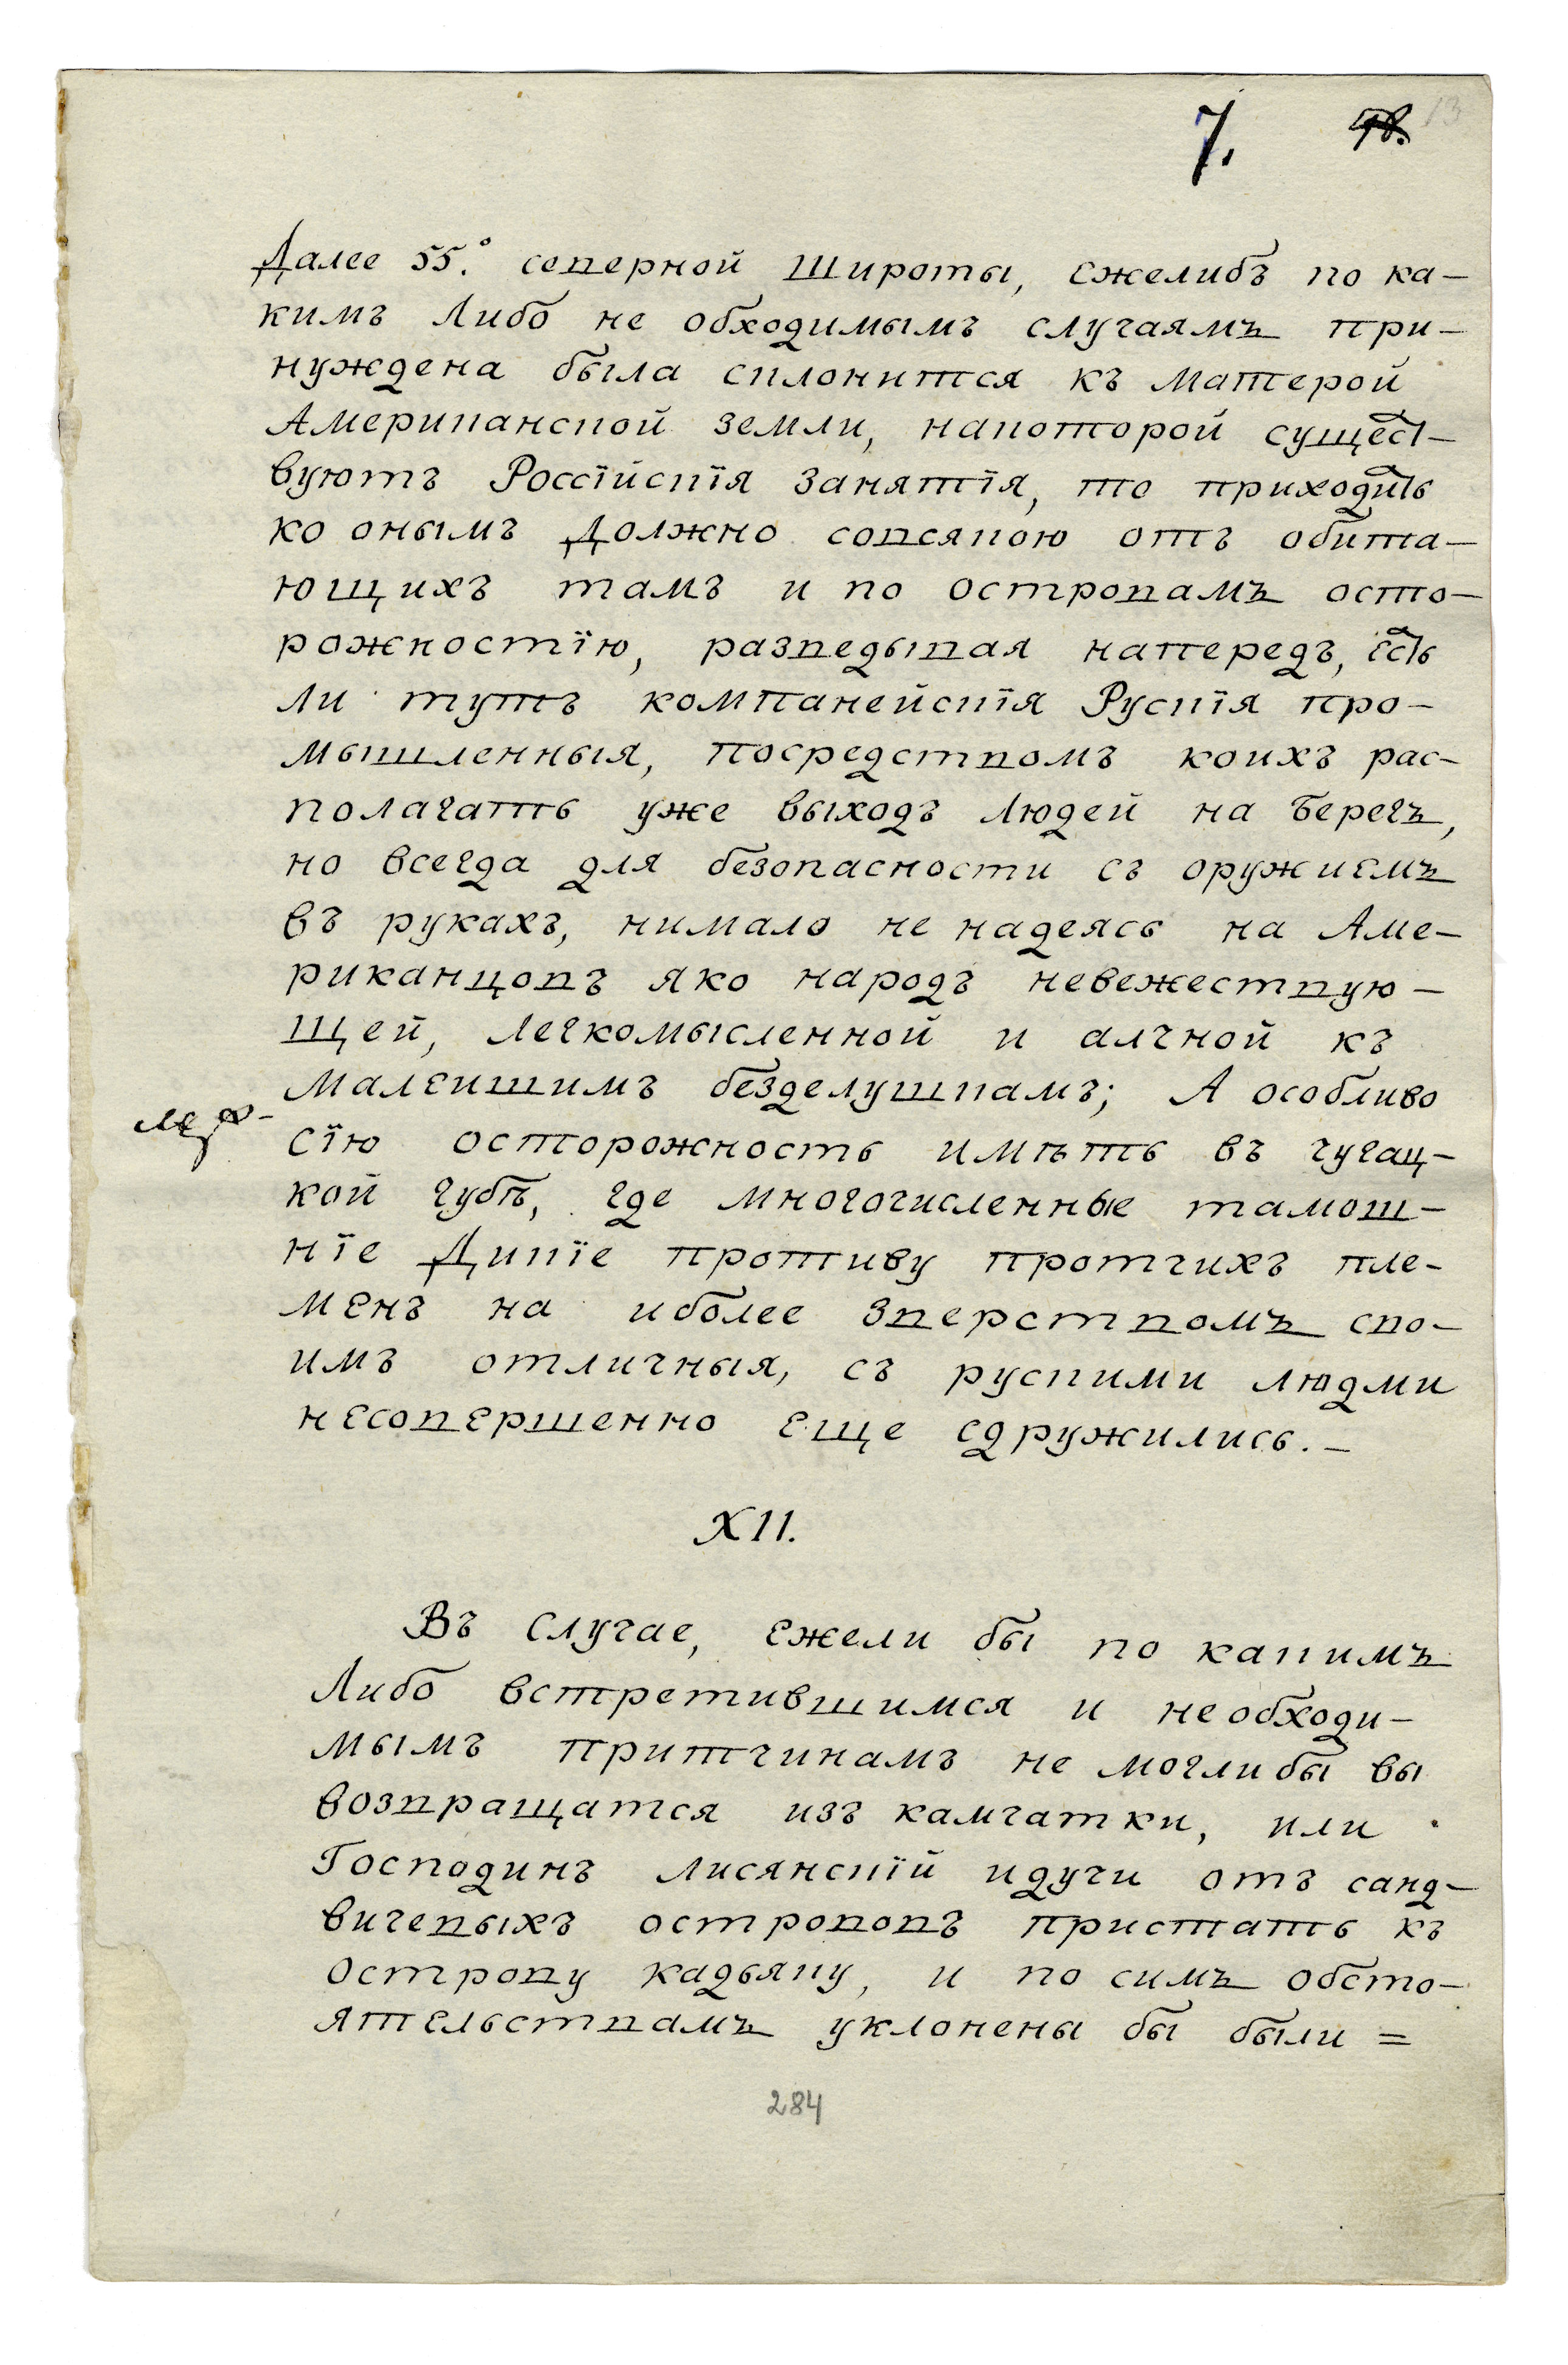 7. 13
Далее 55.° северной широты, ежелибъ по ка-
кимъ либо не обходимымъ случаямъ при-
нуждена была склонится къ матерой
Американской земли, накоторой сущест-
вуютъ Россїйскїя занятїя, то приходить
ко онымъ должно совсякою отъ обита-
ющихъ тамъ и по островамъ осто-
рожностїю, разведывая напередъ, есть
ли тутъ компанейскїя Рускїя про-
мышленныя, посредствомъ коихъ рас-
полагать уже выходъ людей на берегъ,
но всегда для безопасности съ оружиемъ
въ рукахъ, нимало не надеясь на Аме-
риканцовъ яко народъ невежествую-
щей, легкомысленной и алчной къ
малеишимъ безделушкамъ; А особливо
сїю осторожность имѣть въ чугац-
кой губѣ, где многочисленные тамош-
нїе Дикїе противу протчихъ пле-
менъ на иболее зверствомъ сво-
имъ отличныя, съ рускими людми
несовершенно еще сдружились.-
XII.
Въ случае, ежели бы по какимъ
либо встретившимся и необходи-
мымъ притчинамъ не моглибы вы
возвращатся изъ камчатки, или
Господинъ Лисянскїй идучи отъ санд-
вичевыхъ острововъ пристать къ
острову кадьяку, и по симъ обсто-
ятельствамъ уклонены бы были =
284